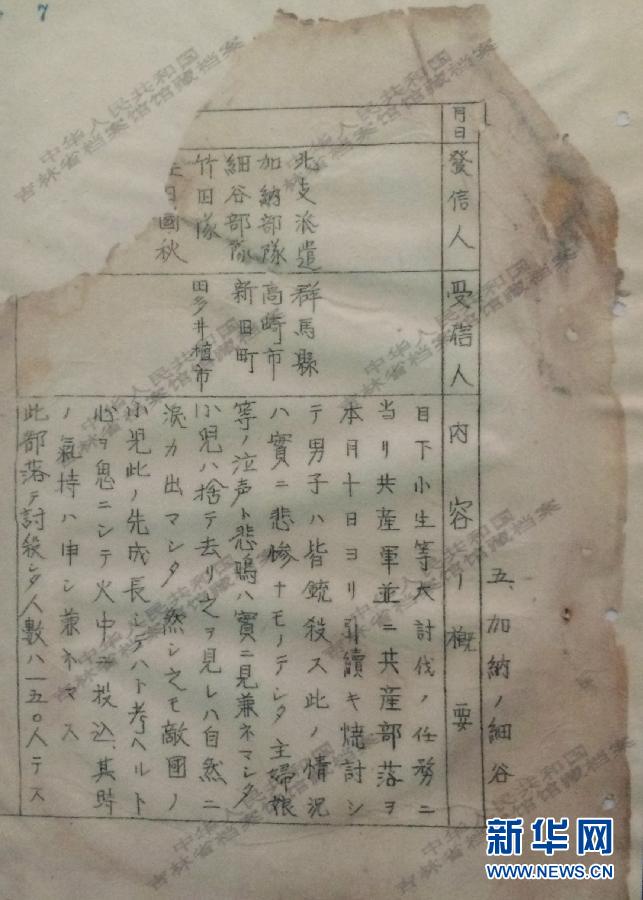 7
五、加納ノ細谷
月日
發信人
受信人
内容ノ概要
北支派遣
加納部隊
細谷部隊
竹田隊
國秋
群馬縣
高崎市
新田町
田多井植市
目下小生等大討伐ノ任務ニ
当リ共産軍並ニ共産部落ヲ
本月十日ヨリ引續キ焼討シ
テ男子ハ皆銃殺ス此ノ情況
ハ實ニ悲惨ナモノデシタ主婦娘
等ノ泣声ト悲鳴ハ實ニ見兼ネマシタ
小児ハ捨テ去リ之ヲ見レハ自然ニ
淚カ出マシタ然シ之モ敵國ノ
小児此ノ先成長シテハト考ヘルト
心ヲ鬼ニシテ火中ニ投込、其時
ノ氣持ハ申シ兼ネマス
此部落テ討殺シタ人數ハ一五〇人テス
中华人民共和国
吉林省档案馆馆藏档案
新华网
WWW.NEWS.CN